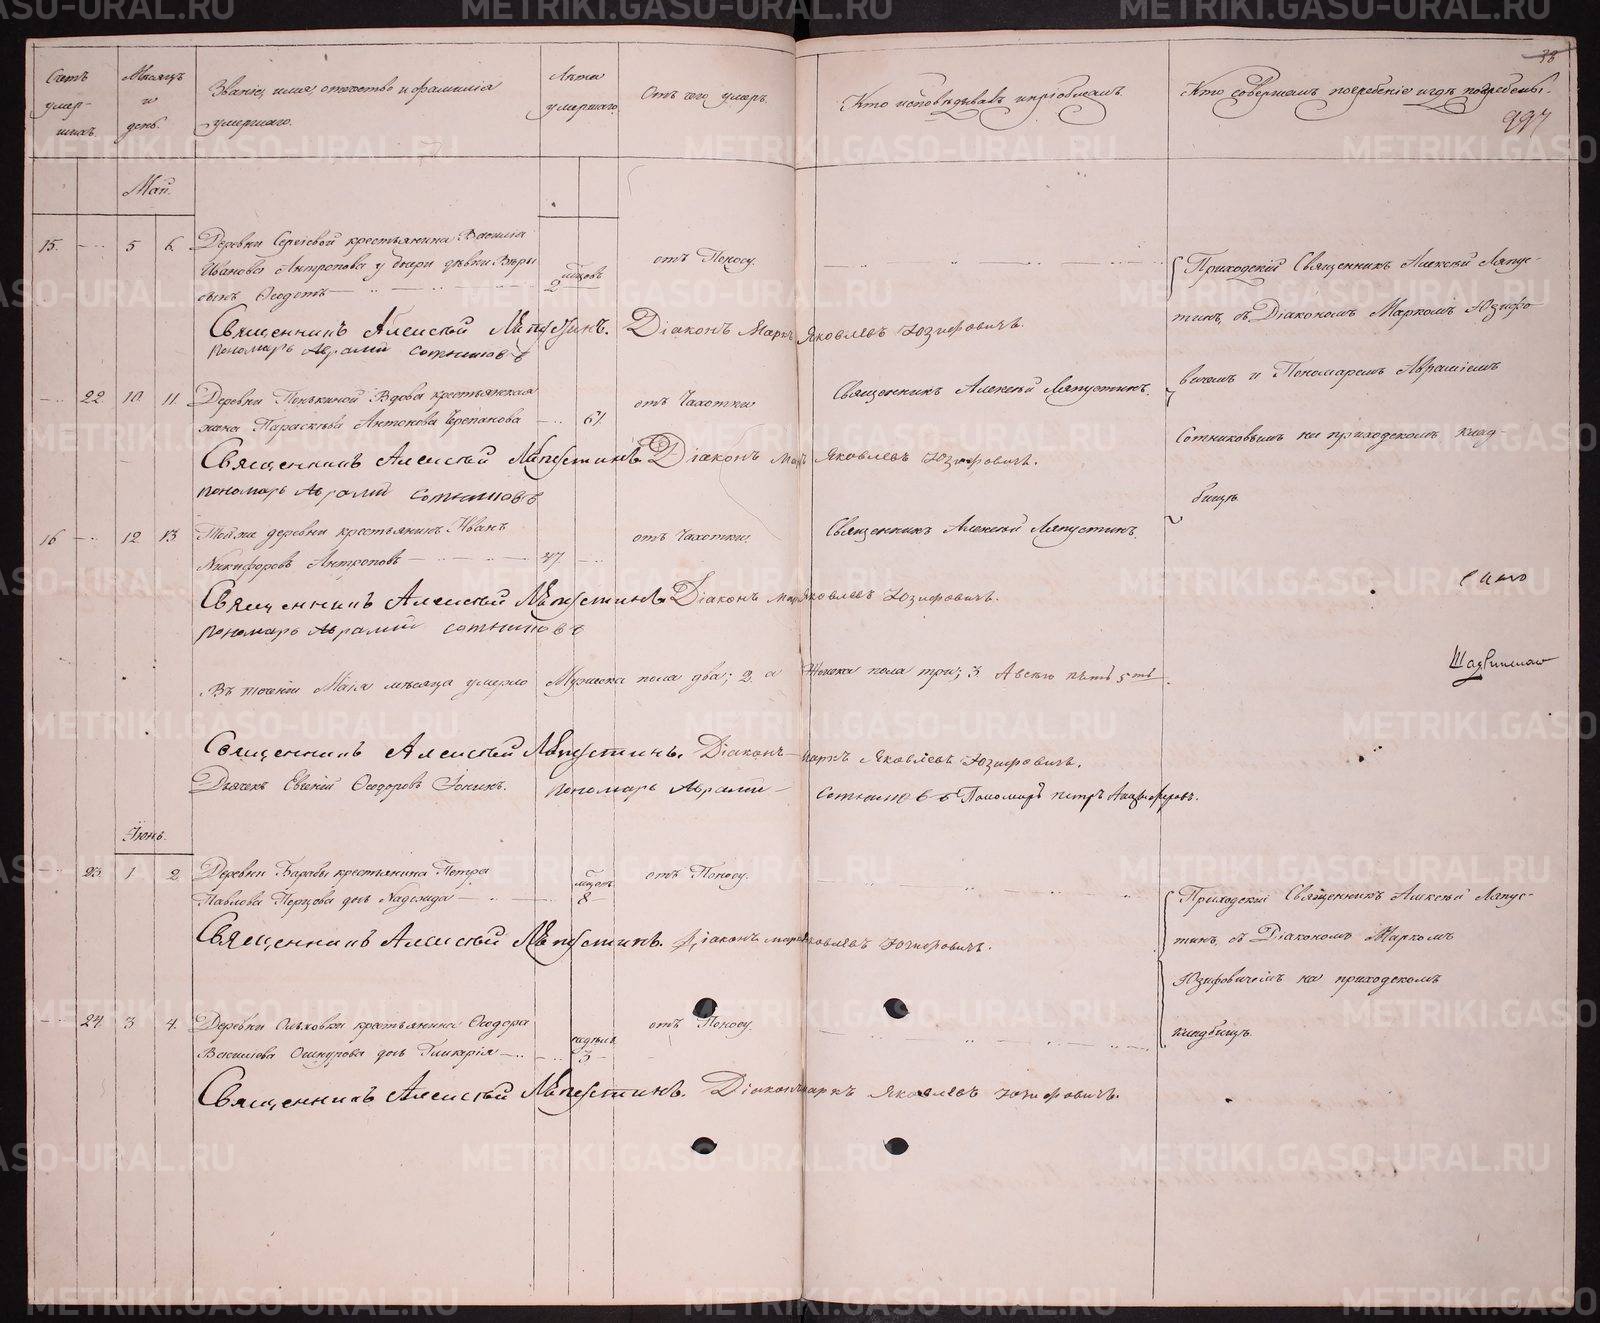 38
997
Счетъ умер-шихъ.
Мѣсяцъ и день.
Званіе, имя, отчество и фамилія умершаго.
Лѣта умершаго.
Отъ чего умеръ.
Кто исповѣдывалъ и пріобщалъ.
Кто совершалъ погребеніе и гдѣ погребены.
Май.
15. 5 6. Деревни Сергіевой крестьянина Василія
Иванова Антропова у дочери дѣвки Вѣры
сынъ Ѳеодотъ
2 мѣсцовъ
отъ Поносу.
Приходскій Священникъ Алексѣй Ляпус-
тинъ, съ Діакономъ Маркомъ Юзифо
вичемъ и Пономаремъ Авраміемъ
Сотниковымъ на приходскомъ клад-
бищѣ.
Священникъ Алексѣй Ляпустинъ. Діаконъ Маркъ Яковлевъ Юзифовичь.
Пономарь Аврамій Сотниковъ
22. 10 11. Деревни Пенькиной Вдова крестьянская
жена Параскѣва Антонова Черепанова
61.
отъ Чахотки
Священникъ Алексѣй Ляпустинъ.
Священникъ Алексѣй Ляпустинъ. Діаконъ Маркъ Яковлевъ Юзифовичь.
Пономарь Аврамій Сотниковъ
16 12 13 Тойже деревни крестьянинъ Иванъ
Никифоровъ Антроповъ
47.
отъ Чахотки.
Священникъ Алексѣй Ляпустинъ.
Священникъ Алексѣй Ляпустинъ. Діаконъ Маркъ Яковлевъ Юзифовичь.
Пономарь Аврамій Сотниковъ
Въ теченіи Маія мѣсяца умерло Мужеска пола два; 2. а Женска пола три; 3. А всего пять 5ть.
Священникъ Алексѣй Ляпустинъ. Діаконъ Маркъ Яковлевъ Юзифовичь.
Дьячекъ Евгеній Ѳеодоровъ Іонинъ. Пономарь Аврамій Сотниковъ Пономарь Петръ
Іюнь.
23. 1 2 Деревни Барабы крестьянина Петра
Павлова Перцова дочь Надежда
мѣсцовъ 8
отъ Поносу.
Приходскій Священникъ Алексѣй Ляпус-
тинъ, съ Діакономъ Маркомъ
Юзифовичемъ на приходскомъ
кладбищѣ.
Священникъ Алексѣй Ляпустинъ. Діаконъ Маркъ Яковлевъ Юзифовичь.
24. 3 4. Деревни Ольховки крестьянина Ѳеодора
Василіева Ошкурова дочь Гликерія
недѣль 3
отъ Поносу.
Священникъ Алексѣй Ляпустинъ. Діаконъ Маркъ Яковлевъ Юзифовичь.
METRIKI.GASO-URAL.RU